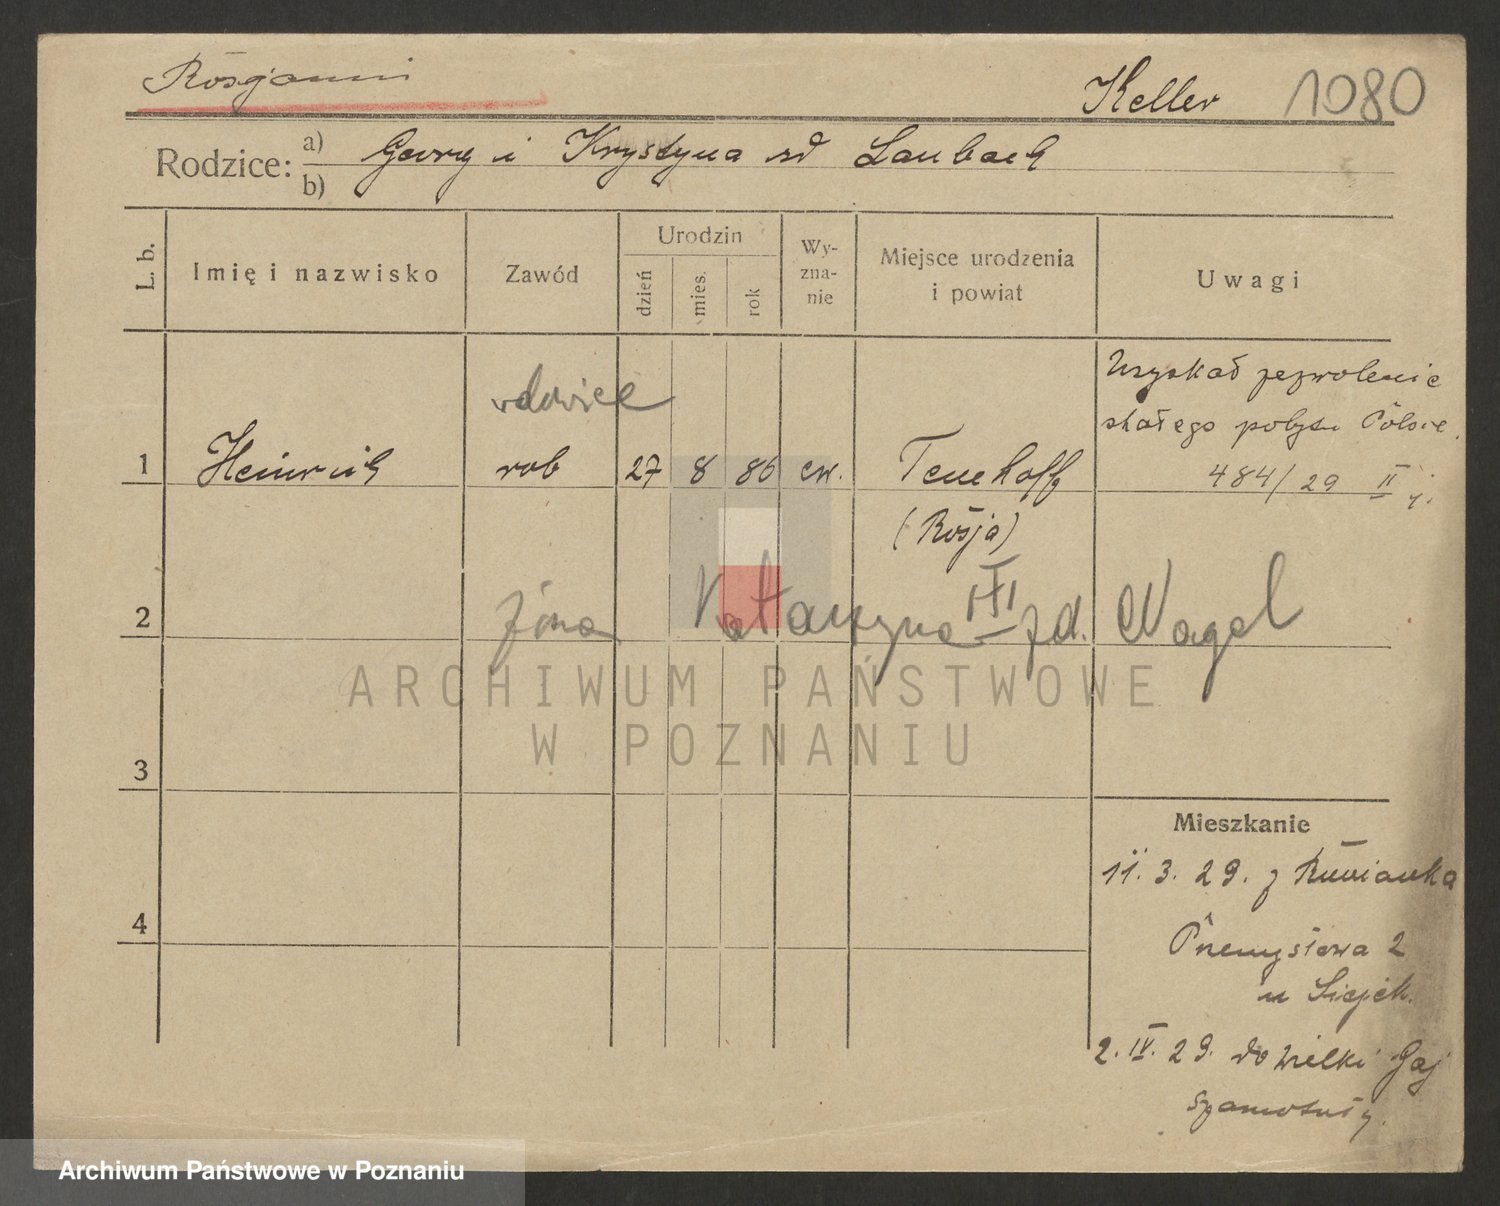 Rosjanin
Keller 1080
Rodzice: a) Georg i Krystyna zd Laubach
b)
L. b.
Imię i nazwisko
Zawód
Urodzin
dzień
mies.
rok
Wy-
zna-
nie
Miejsce urodzenia
i powiat
Uwagi
Uzyskał zezwolenie
stałego pobytu Polsce.
484/29 II
wdowiec
1 Heinrich rob 27 8 86 ew. Tenehoff
(Rosja)
2 żona Katarzyna zd. Nagel
III
ARCHIWUM PAŃSTWOWE
W POZNANIU
3
4
Mieszkanie
11. 3. 29. z
Przemysłowa 2
u
2. IV. 29. do Wielki Gaj
Szamotuły.
Archiwum Państwowe w Poznaniu